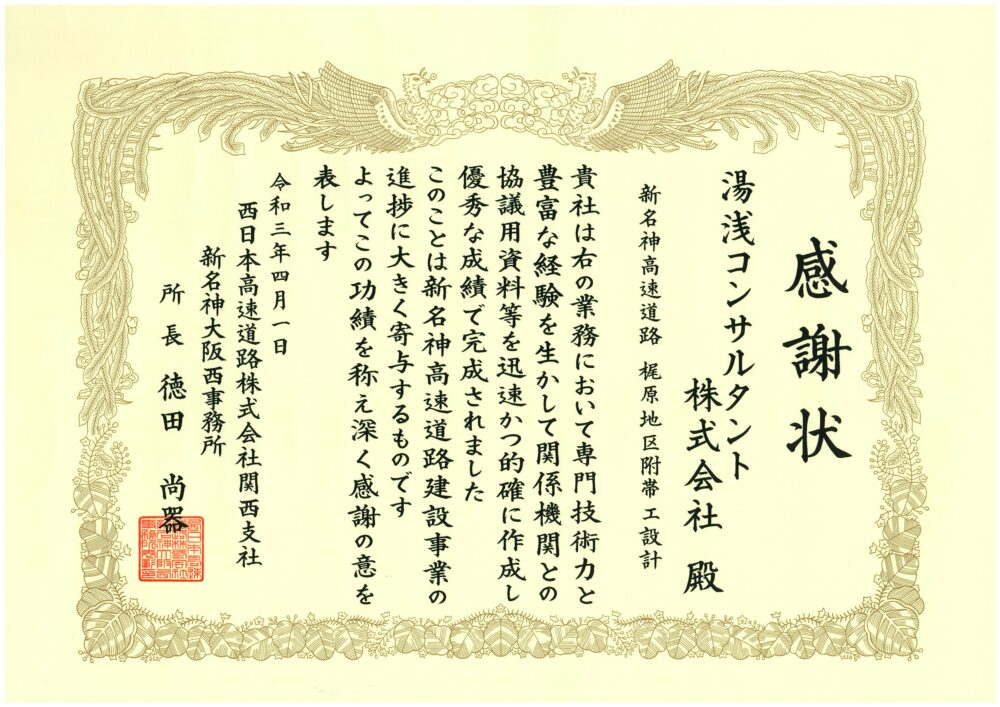 感謝状
湯浅コンサルタント
株式会社 殿
新名神高速道路 梶原地区附帯工設計
貴社は右の業務において専門技術力と
豊富な経験を生かして関係機関との
協議用資料等を迅速かつ的確に作成し
優秀な成績で完成されました
このことは新名神高速道路建設事業の
進捗に大きく寄与するものです
よってこの功績を称え深く感謝の意を
表します
令和三年四月一日
西日本高速道路株式会社関西支社
新名神大阪西事務所
所長 徳田 尚器